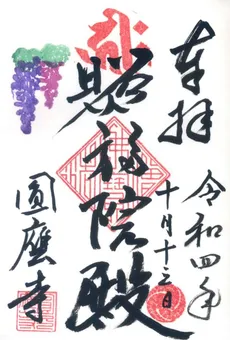 奉拝
令和四年
十月十三日
賜福院殿
圓應寺